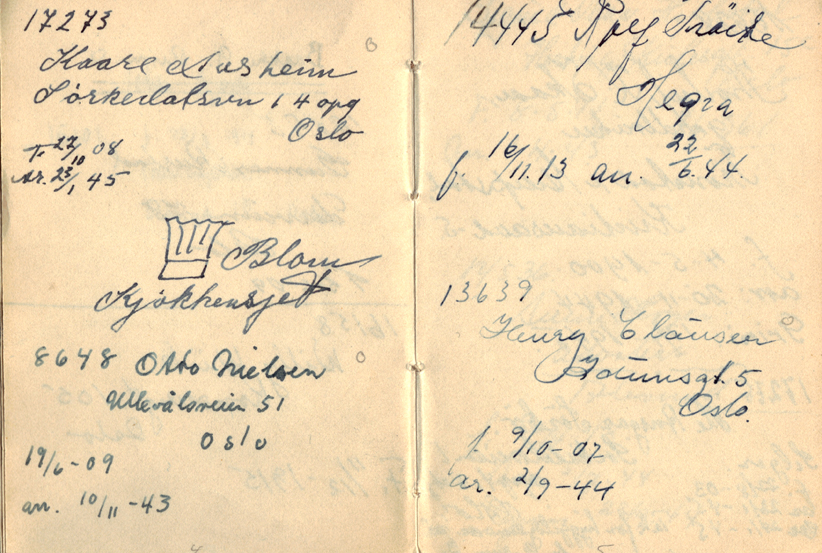 17273
Kaare Aarsheim
Sørkedalsvn 14 opg
Oslo
f. 27/10 08
Ar. 23/1 45
Blom
Kjøkkensjef
8648 Otto Nielsen
Ullevålsveien 51
Oslo
19/6-09
arr. 10/11-43
14445
Hegra
f. 16/11.13 arr. 22/6.44
13639
Henry Clausen
Oslo.
f. 9/10-07
ar. 2/9-44